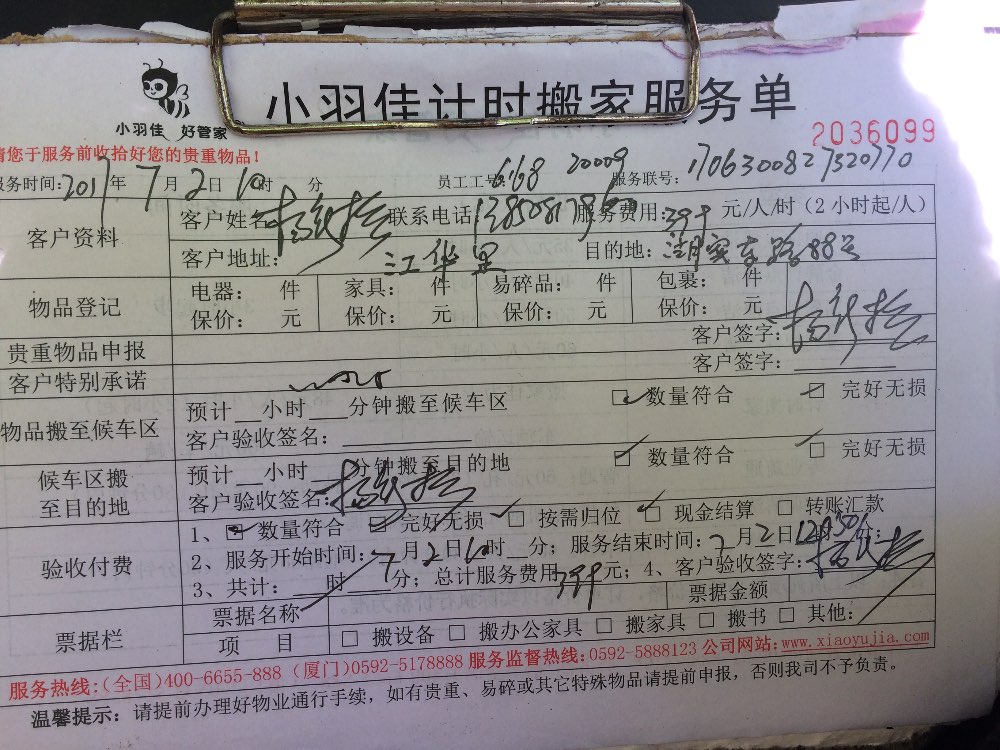 小羽佳计时搬家服务单
小羽佳 好管家
2036099
请您于服务前收拾好您的贵重物品!
服务时间: 2017年7月2日10时 分 员工工号: 6168 20009 服务联号: 1706300827320770
客户资料 客户姓名: 联系电话: 服务费用: 元/人/时(2小时起/人)
客户地址: 江华里 目的地: 湖宾东路88号
物品登记 电器: 件 家具: 件 易碎品: 件 包裹: 件
保价: 元 保价: 元 保价: 元 保价: 元
贵重物品申报 客户签字:
客户特别承诺 客户签字:
物品搬至候车区 预计__小时__分钟搬至候车区 数量符合 完好无损
客户验收签名:
候车区搬至目的地 预计__小时__分钟搬至目的地 数量符合 完好无损
客户验收签名:
验收付费 1、 数量符合 完好无损 按需归位 现金结算 转账汇款
2、服务开始时间: 7月2日10时__分; 服务结束时间: 7月2日12时50分;
3、共计: 时 分; 总计服务费用399元; 4、客户验收签字:
票据栏 票据名称 票据金额
项 目 搬设备 搬办公家具 搬家具 搬书 其他:
服务热线:(全国)400-6655-888 (厦门)0592-5178888 服务监督热线:0592-5888123 公司网站:www.xiaoyujia.com
温馨提示: 请提前办理好物业通行手续,如有贵重、易碎或其它特殊物品请提前申报,否则我司不予负责。